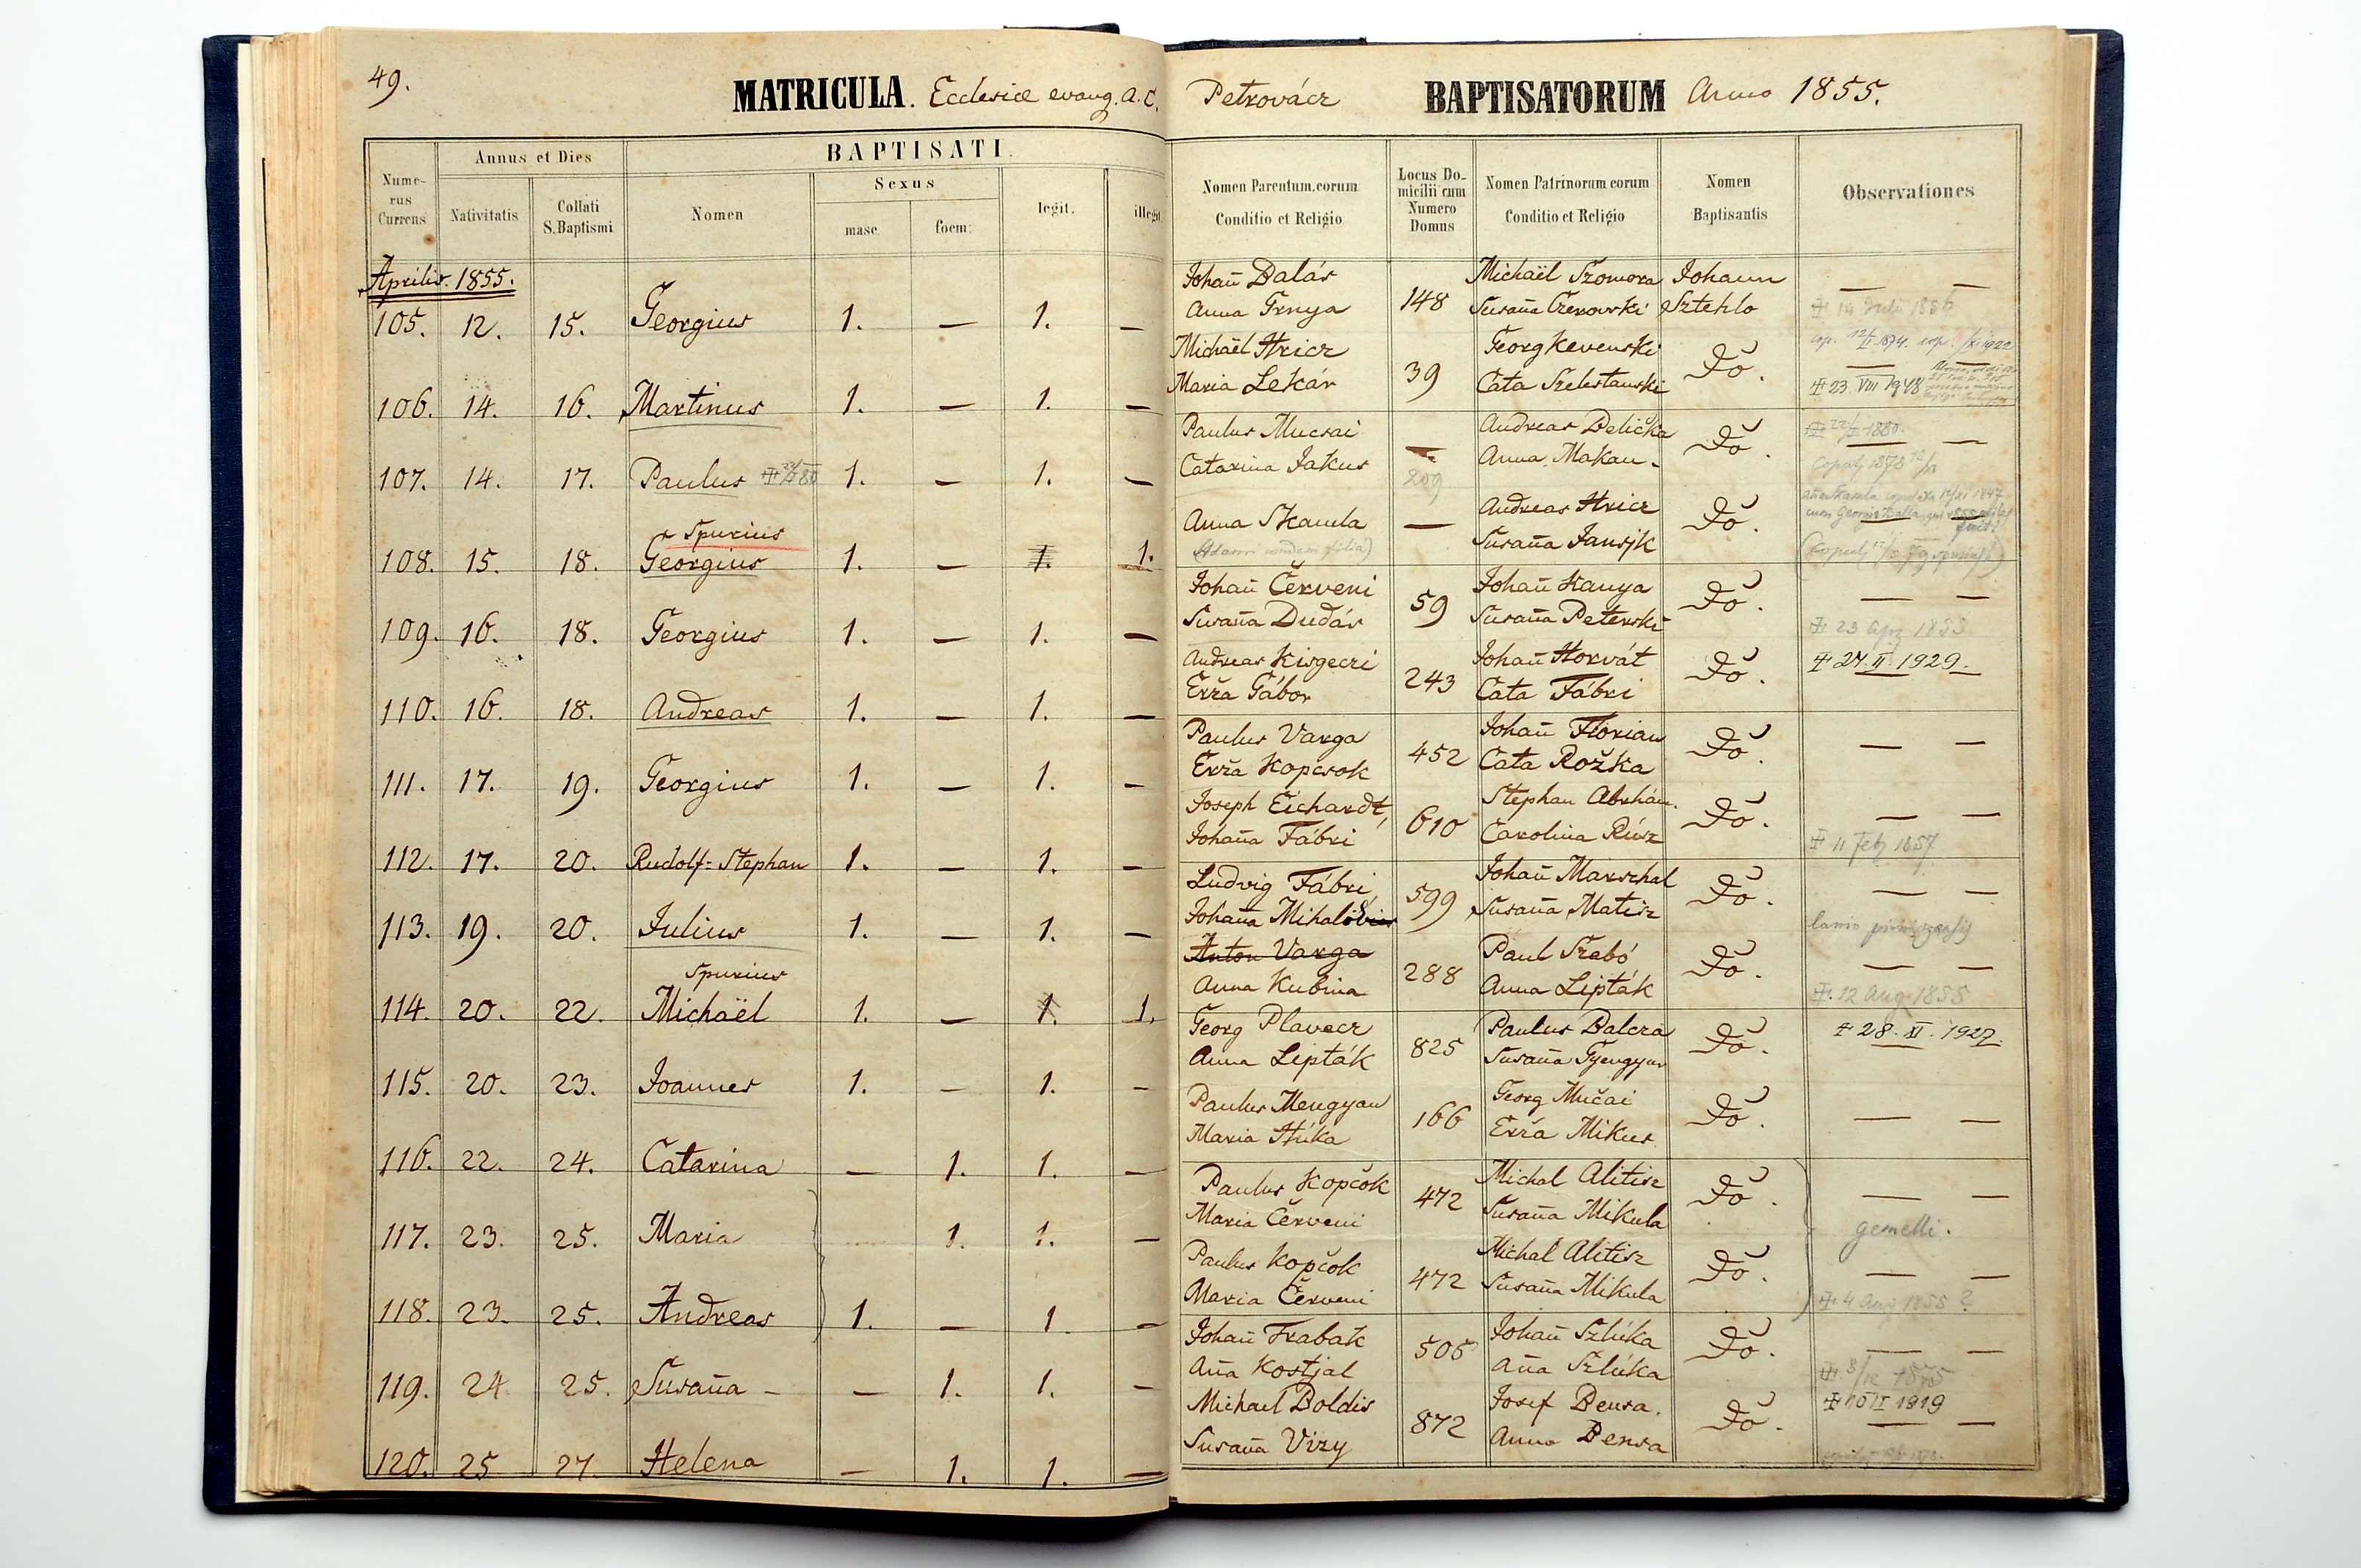 49.
MATRICULA. Ecclesiæ evang. A. C. Petrovácz BAPTISATORUM Anno 1855.
Nume-rus Currens
Annus et Dies
Nativitatis
Collati S. Baptismi
BAPTISATI.
Nomen
Sexus
masc.
foem.
legit.
illegit.
Nomen Parentum, eorum Conditio et Religio
Locus Do-micilii cum Numero Domus
Nomen Patrinorum eorum Conditio et Religio
Nomen Baptisantis
Observationes
Aprilis. 1855.
105. 12. 15. Georgius 1. — 1. —
Johañ Balás Anna Trnya 148 Michaël Szomora Susaña Czerovski Johann Sztehlo — —
106. 14. 16. Martinus 1. — 1. —
Michaël Hricz Maria Lekár 39 Georg Kevenski Cata Do. — 23. VIII 1948
107. 14. 17. Paulus 1. — 1. —
Paulus Mucsai Catarina Jakus 209 Andreas Belička Anna Makan Do. — — 1880.
Spurius
108. 15. 18. Georgius 1. — 1. 1.
Anna Skamla — Andreas Hricz Susaña Jansjk Do. — —
109. 16. 18. Georgius 1. — 1. —
Johañ Červeni Susaña Dudás 59 Johañ Kanya Susaña Peterski Do. — —
23 Apr 1855
110. 16. 18. Andreas 1. — 1. —
Andreas Kisgeczi Erža Gábor 243 Johañ Horvát Cata Fábri Do. 24. II. 1929.
111. 17. 19. Georgius 1. — 1. —
Paulus Varga Erža Kopcsok 452 Johañ Florian Cata Rožka Do. — —
112. 17. 20. Rudolf=Stephan 1. — 1. —
Joseph Eichardt, Johaña Fábri 610 Stephan Abrhám. Carolina Do. — —
11 Feb 1857
113. 19. 20. Julius 1. — 1. —
Ludvig Fábri Johaña Mihalovics 599 Johañ Marschal Susaña Matisz Do. — —
Spurius
114. 20. 22. Michaël 1. — 1. 1.
Anton Varga Anna Kubina 288 Paul Szabó Anna Lipták Do. — —
12 Aug. 1855
115. 20. 23. Joannes 1. — 1. —
Georg Plavecz Anna Lipták 825 Paulus Balcza Susaña Gyengyan Do. 28. XI. 1927.
116. 22. 24. Catarina — 1. 1. —
Paulus Mengyan Maria Húka 166 Georg Mučai Erža Mikus Do. — —
117. 23. 25. Maria 1. 1. —
Paulus Kopčok Maria Červeni 472 Michal Alitisz Susaña Mikula Do. — —
gemelli.
118. 23. 25. Andreas 1. — 1. —
Paulus Kopčok Maria Červeni 472 Michal Alitisz Susaña Mikula Do. — —
4 Aug 1855 ?
119. 24. 25. Susaña — — 1. 1. —
Johañ Trabak Aña Kostjal 505 Johañ Szlúka Aña Szlúka Do. — —
120. 25. 27. Helena — 1. 1. —
Michael Boldis Susaña Vizy 872 Josef Bensa. Anna Bensa Do. 1919 — —